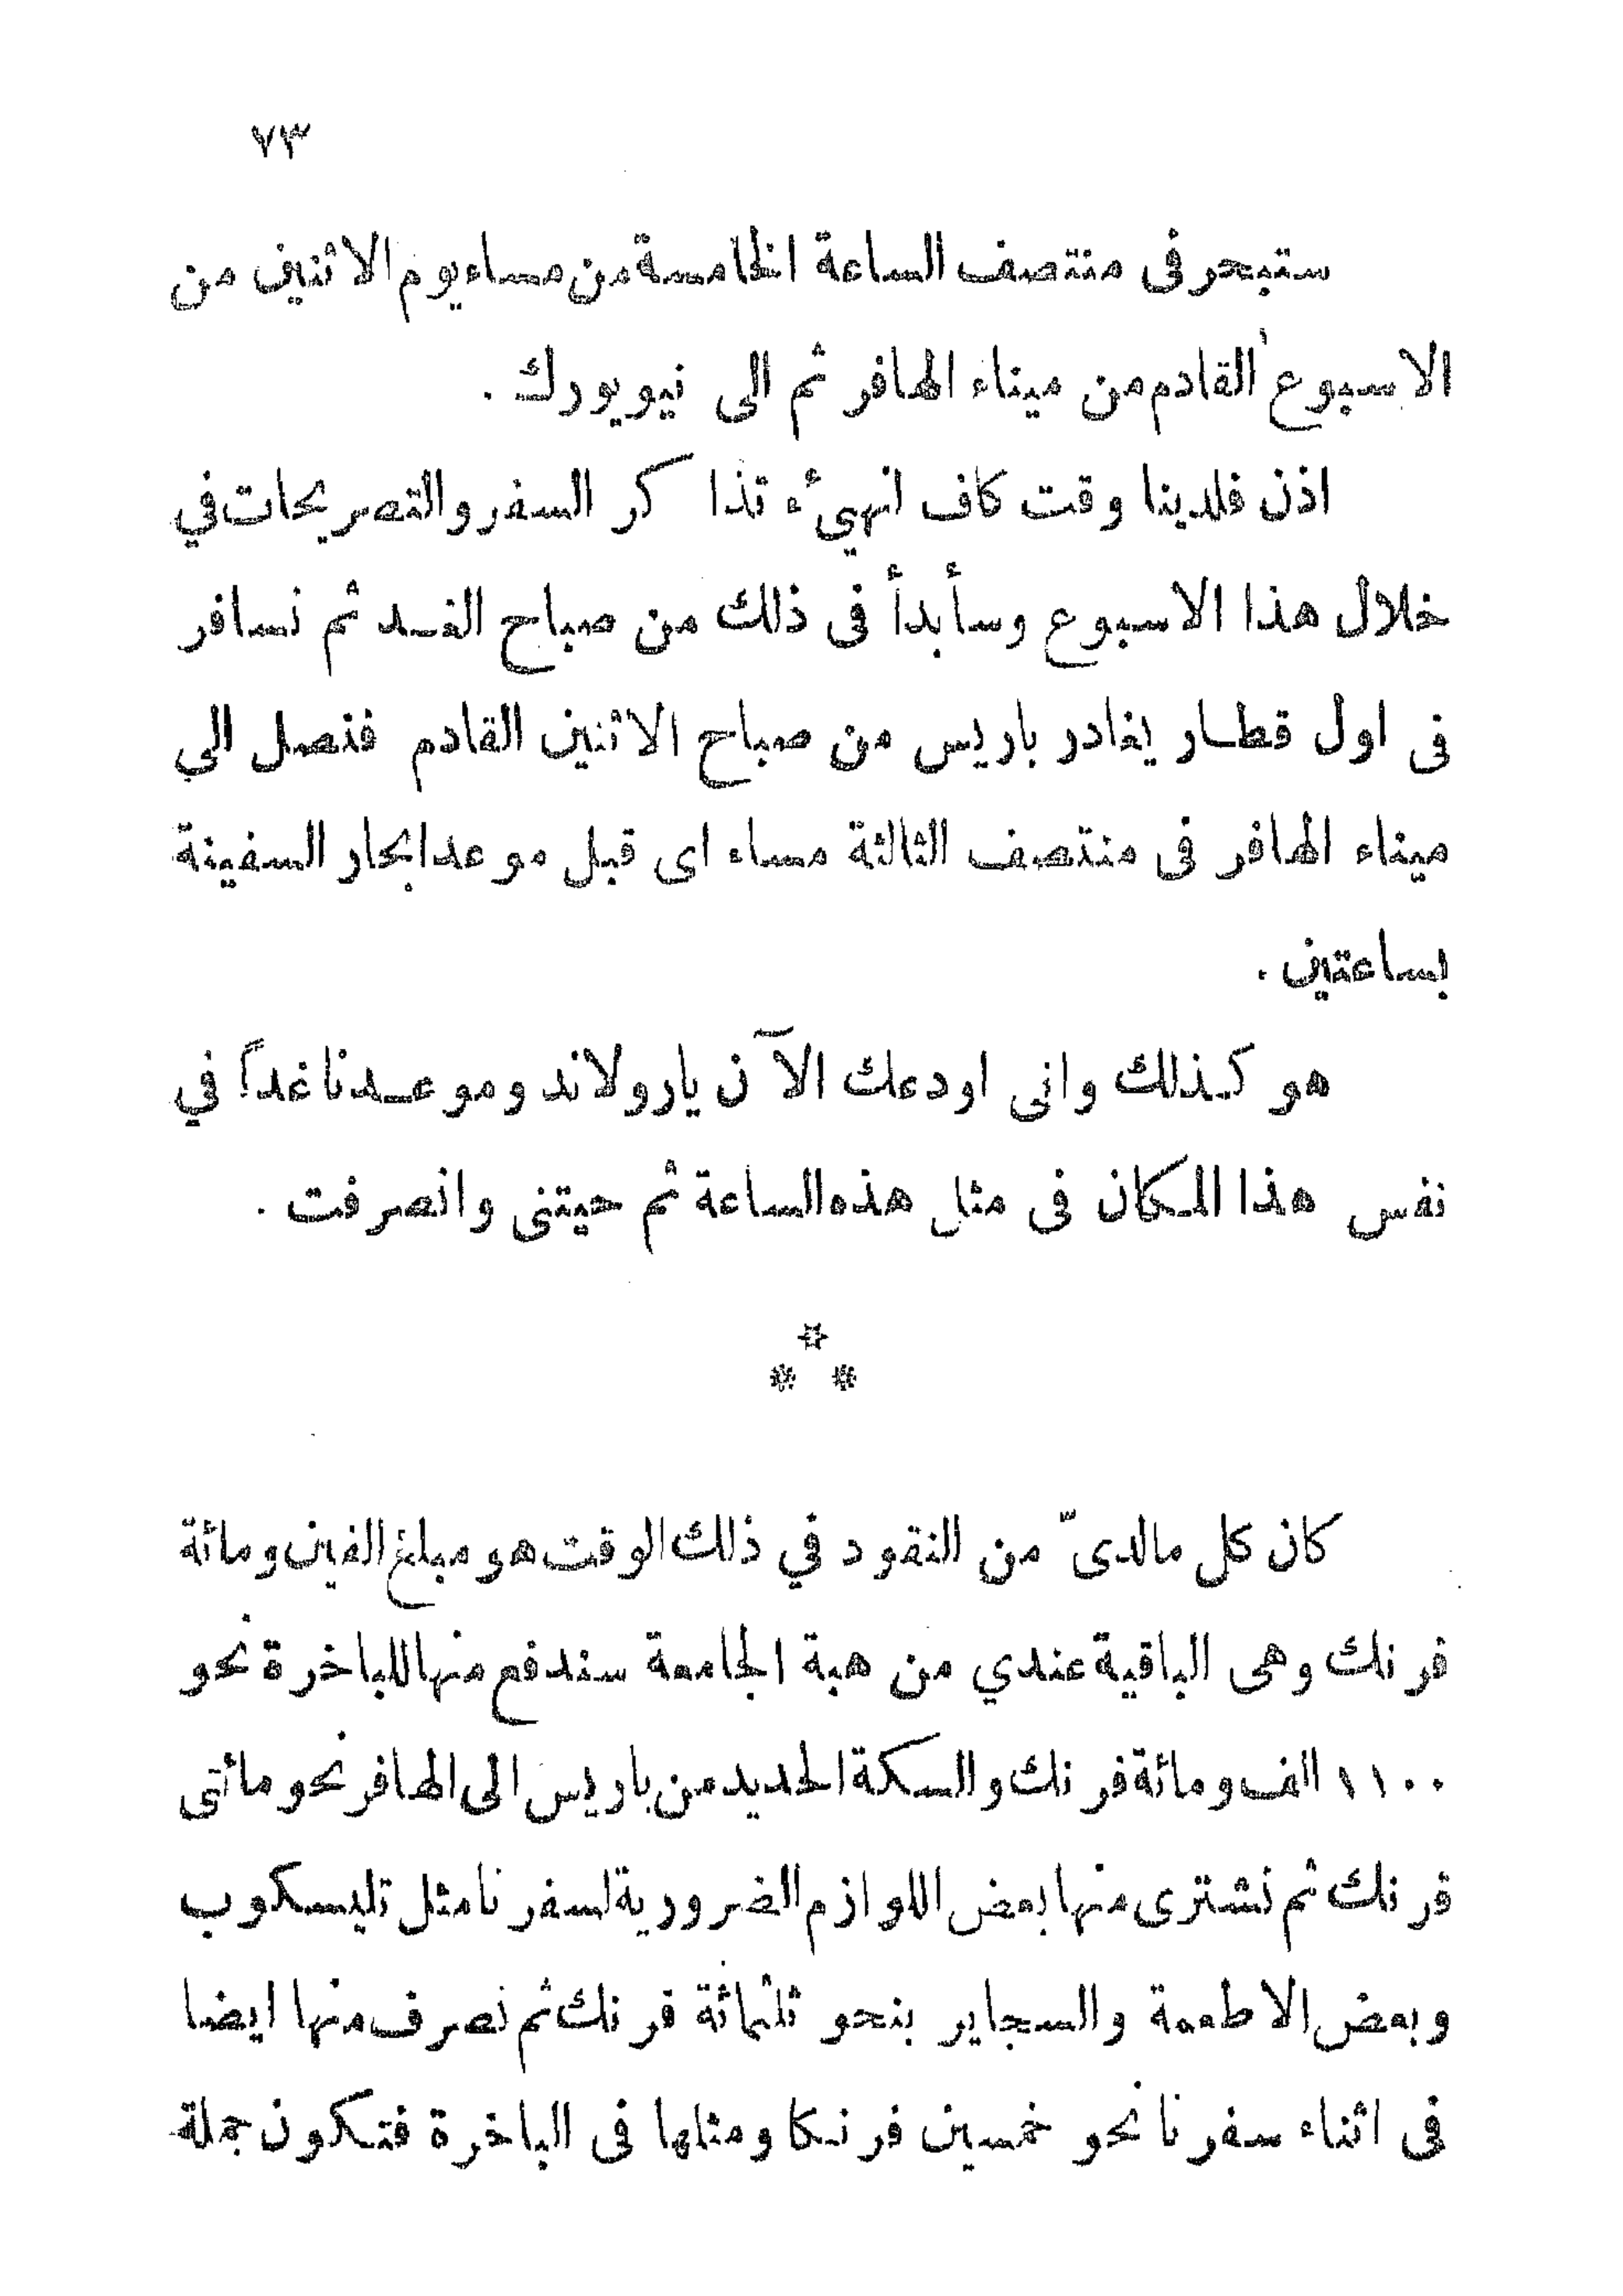 ٧٣
ستبحر فى منتصف الساعة الخامسة من مساء يوم الاثنين من
الاسبوع القادم من ميناء الهافر ثم الى نيويورك .
اذن فلدينا وقت كاف لنهيء تذاكر السفر والتصريحات في
خلال هذا الاسبوع وسأبدأ فى ذلك من صباح الغد ثم نسافر
فى اول قطار يغادر باريس من صباح الاثنين القادم فنصل الي
ميناء الهافر فى منتصف الثالثة مساء اى قبل موعد ابحار السفينة
بساعتين .
هو كذلك وانى اودعك الآن يارولاند وموعدنا غداً في
نفس هذا المكان فى مثل هذه الساعة ثم حيتنى وانصرفت .
☆
* *
كان كل مالدىّ من النقود في ذلك الوقت هو مبلغ الفين ومائة
فرنك وهى الباقية عندي من هبة الجامعة سندفع منها للباخرة نحو
١١٠٠ الف ومائة فرنك والسكة الحديد من باريس الى الهافر نحو مائتى
فرنك ثم نشترى منها بعض اللوازم الضرورية لسفرنا مثل تليسكوب
وبعض الاطعمة والسجاير بنحو ثلثمائة فرنك ثم نصرف منها ايضا
فى اثناء سفرنا نحو خمسين فرنكا ومثلها فى الباخرة فتكون جملة